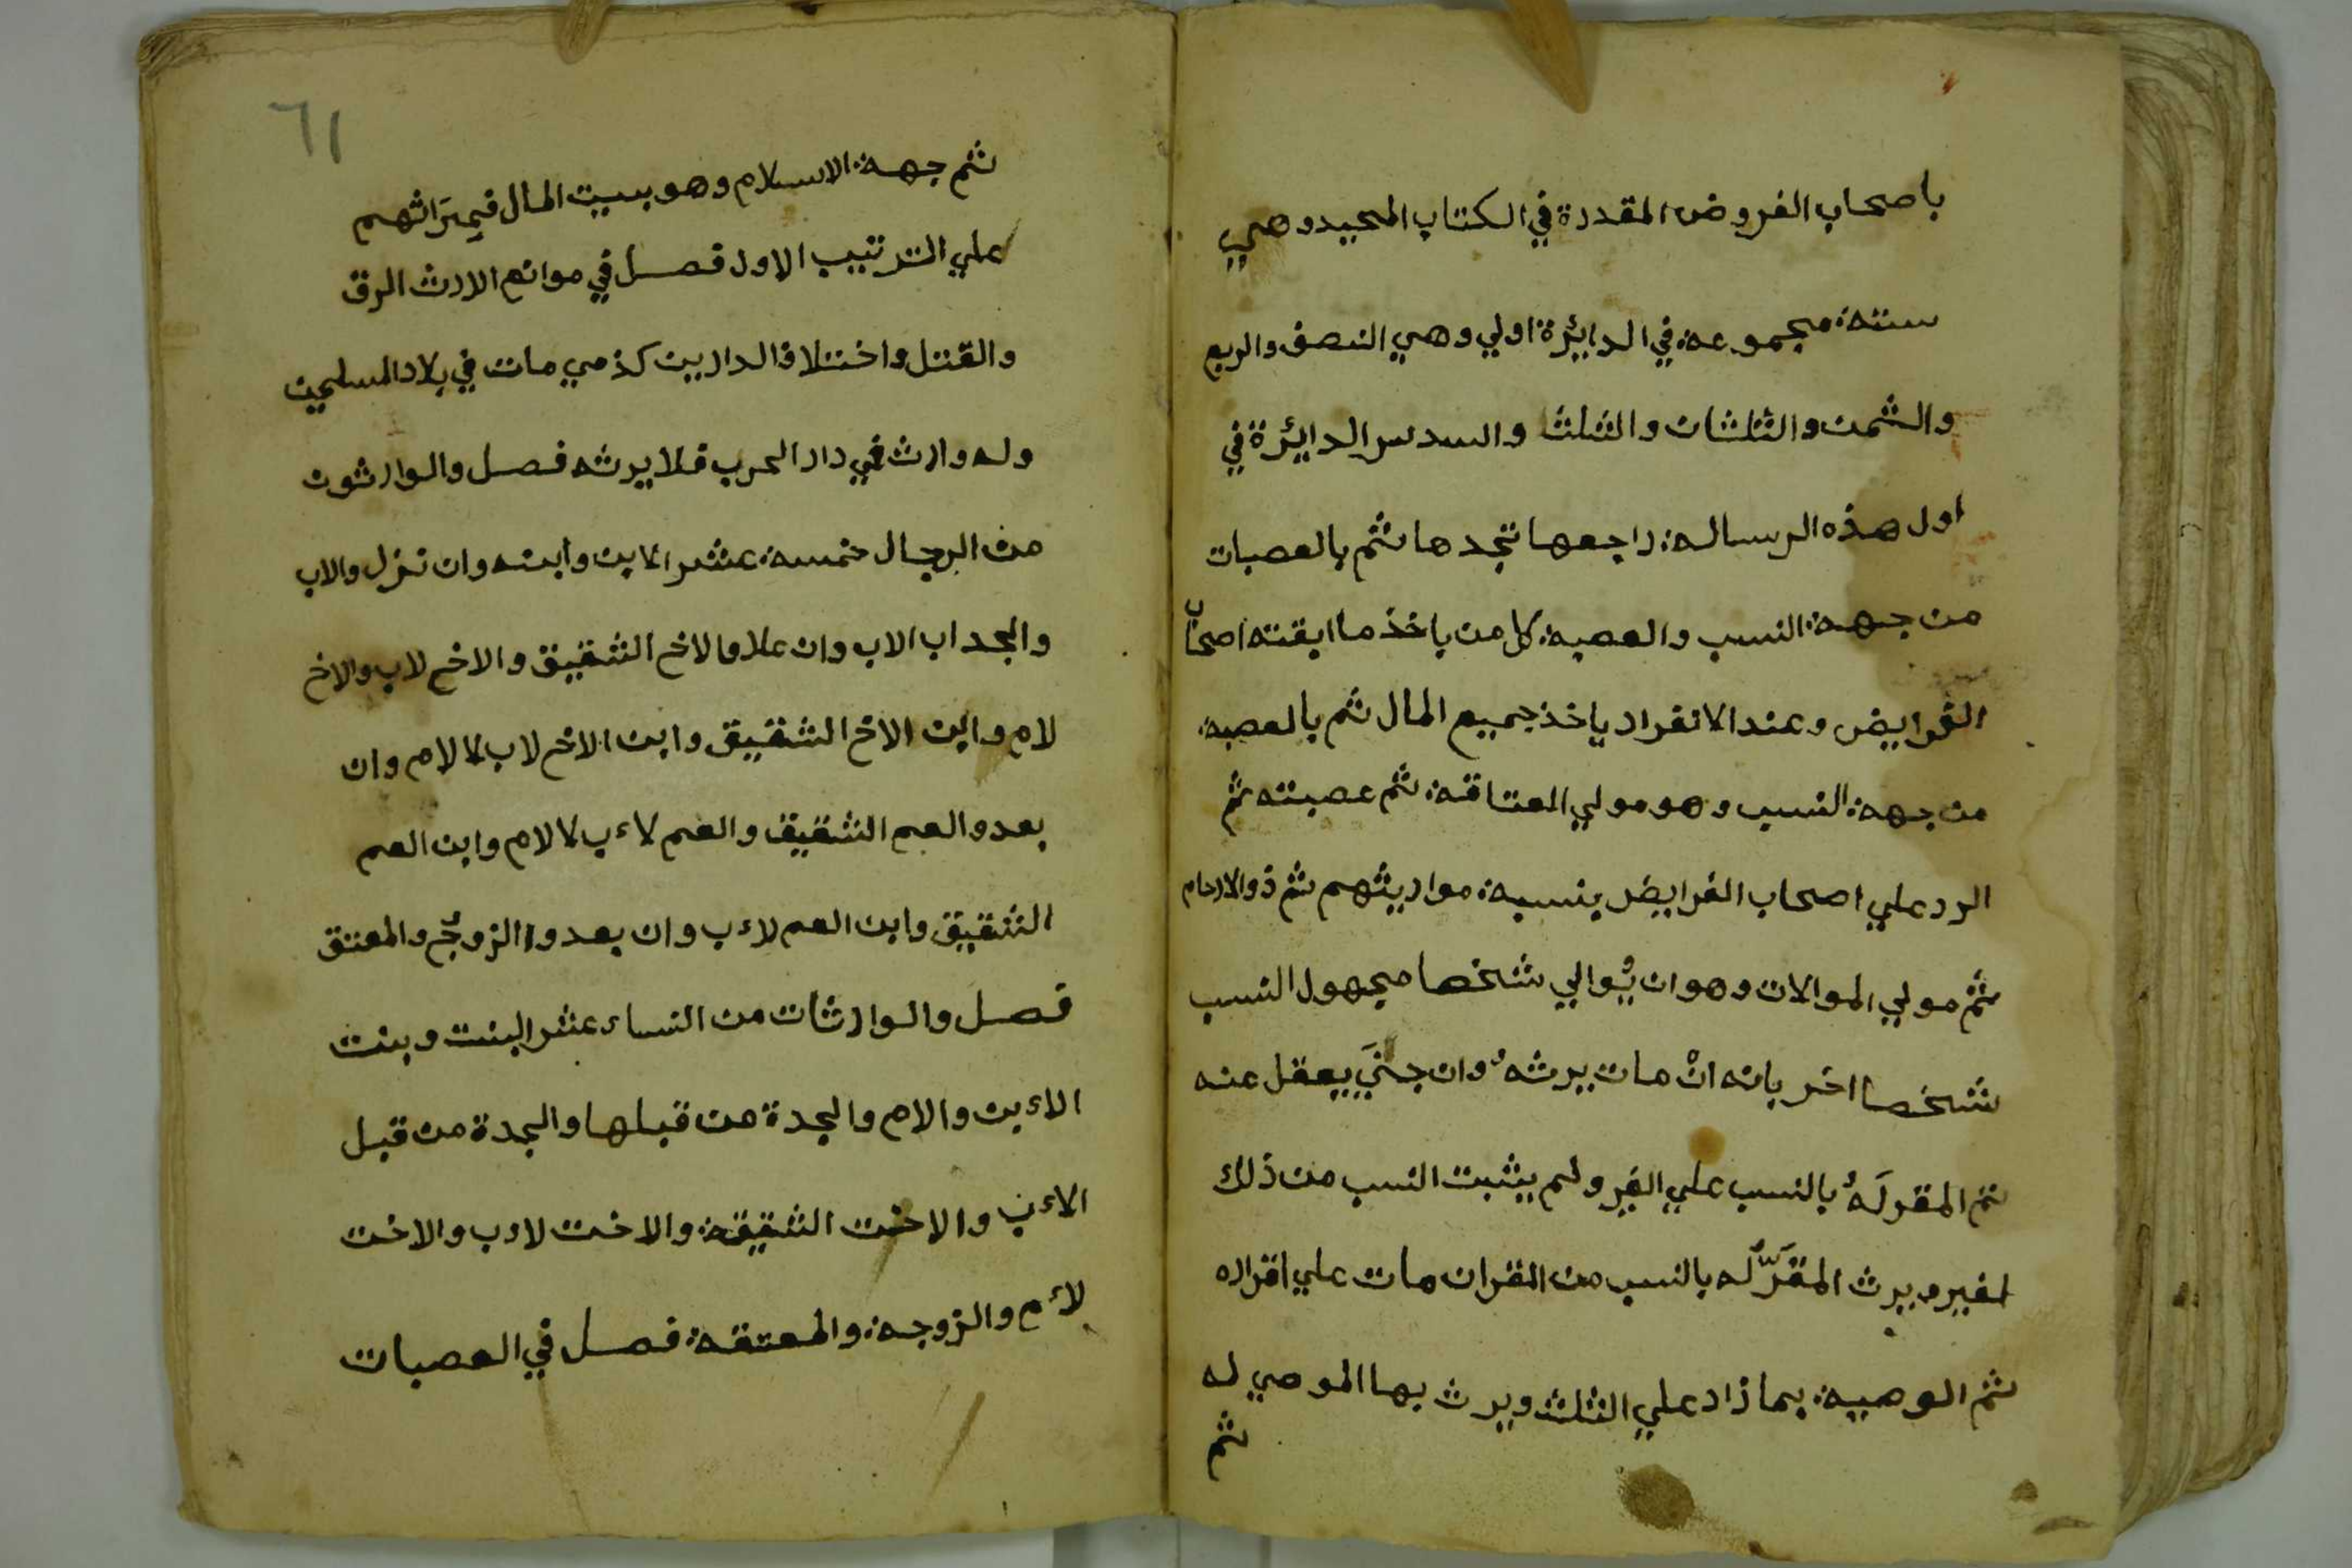 باصحاب الفروض المقدرة في الكتاب المجيد وهي
ستة مجموعة في الدايئرة اولي وهي النصف والربع
والثمن والثلثان والثلث والسدس الدايئرة في
اول هذه الرسالة راجعها تجدها ثم بالعصبات
من جهة النسب والعصبة كل من ياخذ ما ابقته اصحاب
الفرايض وعند الانفراد ياخذ جميع المال ثم بالعصبة
من جهة النسب وهو مولي العتاقة ثم عصبته ثم
الرد علي اصحاب الفرايض بنسبة مواريثهم ثم ذوالارحام
ثم مولي الموالات وهو ان يُوالي شخصا مجهول النسب
شخصا اخر بانه انْ مات يرثهُ وان جنَي يعقل عنه
ثم المقر لَهُ بالنسب علي الغير ولم يثبت النسب من ذلك
الغير ويرث المقَرُّ له بالنسب من المقران مات علي اقراره
ثم الوصية بما زاد علي الثلث ويرث بها الموصي له
ثم
٦١
ثم جهة الاسلام وهو بيت المال فميَراثهم
علي الترتيب الاول فصل في موانع الارث الرق
والقتل واختلاف الدارين كذمي مات في بلاد المسلمين
وله وارث في دار الحرب فلا يرثه فصل والوارثون
من الرجال خمسة عشر الابن وابنه وان نزل والاب
والجد اب الاب وان علا والاخ الشقيق والاخ لاب والاخ
لام وابن الاخ الشقيق وابن الاخ لاب لا لام وان
بعد والعم الشقيق والعم لاءب لا لام وابن العم
الشقيق وابن العم لاءب وان بعدوا الزوج والمعتق
فصل والوارثات من النساء عشر البنت وبنت
الاءبن والام والجدة من قبلها والجدة من قبل
الاءب والاخت الشقيقة والاخت لاءب والاخت
لاءم والزوجة والمعتقة فصل في العصبات